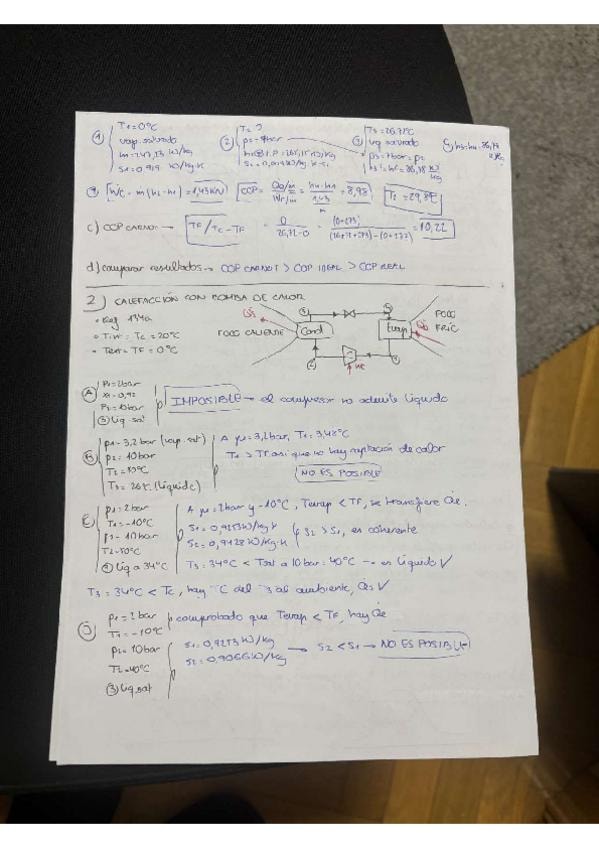 ① T1 = 0°C
vap. saturado
s1 = 0'919 kJ/kg·K
② T2 ?
p2 = 7bar
③ T3 = 26.72°C
p3 = 7bar = p2
WC = m(h2-h1) = 1,43KW
COP = = 8,98
T2 = 29,8°C
c) COP CARNOT → TF/TC-TF = = = 10,22
d) comparar resultados → COP CARNOT > COP IDEAL > COP REAL
2) CALEFACCIÓN CON BOMBA DE CALOR
• Ref 134a
• Tint = TC = 20°C
• Text = TF = 0°C
FOCO CALIENTE
Cond
Evap
FOCO FRÍO
A P1 = 2bar
x1 = 0,92
P2 = 10bar
③ liq. sat
IMPOSIBLE → el compresor no admite líquido
B p1 = 3,2 bar (vap. sat)
p2 = 10bar
T3 = 26°C (líquido)
A p1 = 3,2 bar, T1 = 3,48°C
T1 > TF así que no hay captación de calor
NO ES POSIBLE
p1 = 2bar
T1 = -10°C
③ liq a 34°C
A p1 = 2bar y -10°C, Tevap < TF, se transfiere Qe.
s1 = 0,9253 kJ/kg·K
s2 = 0,9428 kJ/kg·K
s2 > s1, es coherente
T3 = 34°C < Tsat a 10bar = 40°C → es líquido √
T3 = 34°C < Tc, hay TC del 3 al ambiente, Qs √
p1 = 2bar
T1 = -10°C
p2 = 10bar
T2 = 40°C
③ liq. sat
comprobado que Tevap < TF, hay Qe
s1 = 0,9253 kJ/kg
s2 = 0,9066 kJ/kg
→ s2 < s1 → NO ES POSIBLE